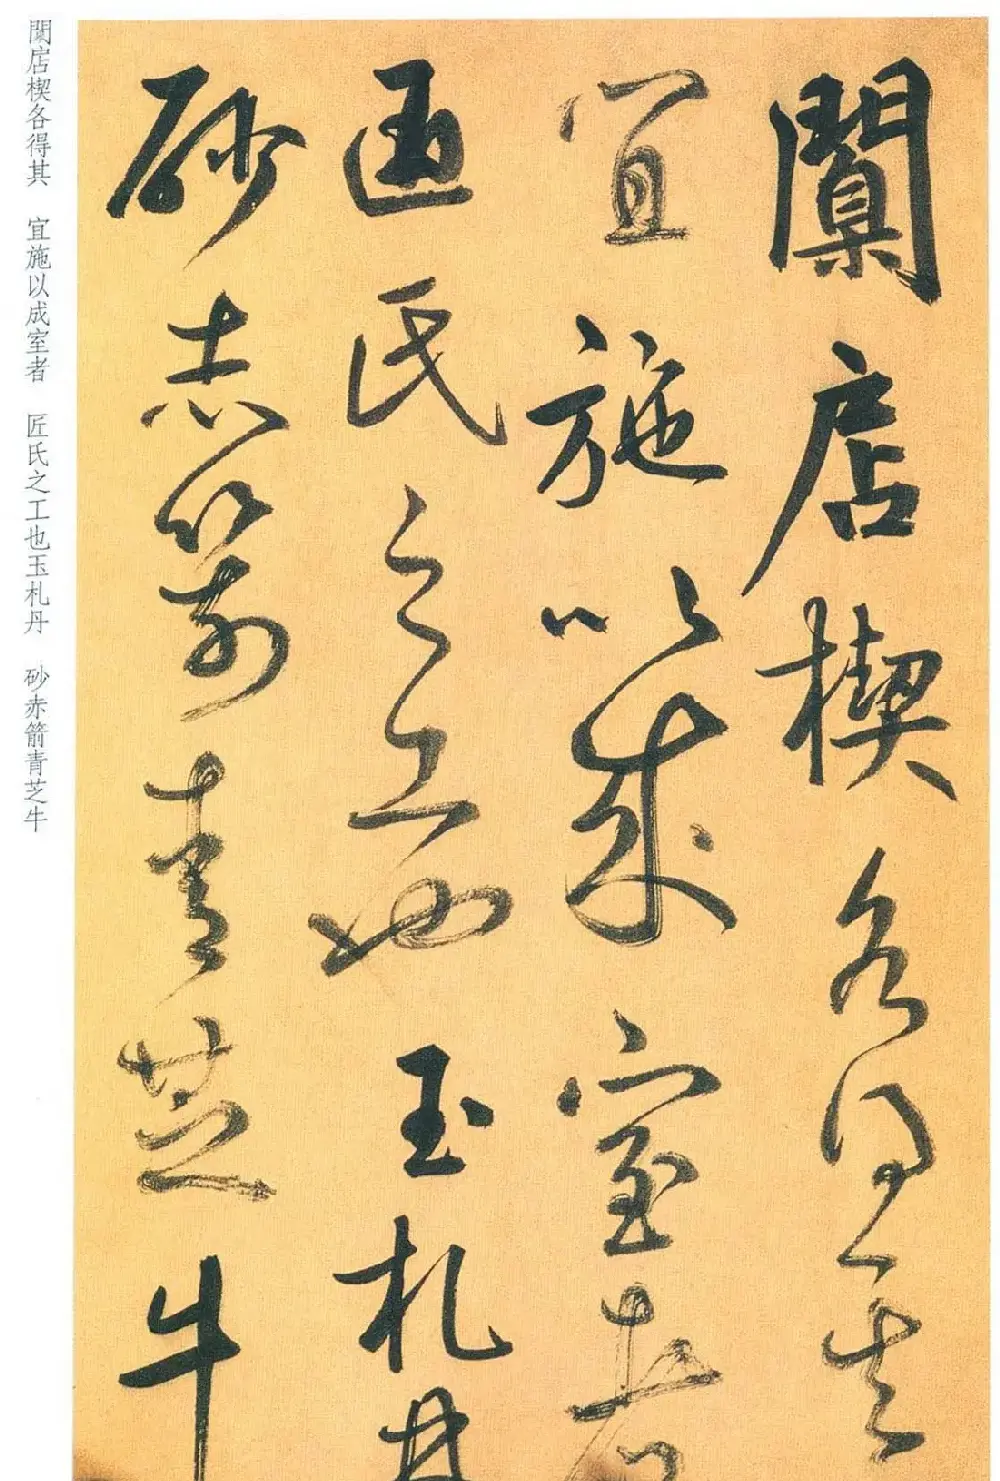 闑店楔各得其
宜施以成室者
匠氏之工也玉札丹
砂赤箭青芝牛
闑扂楔各得其 宜施以成室者 匠氏之工也玉札丹 砂赤箭青芝牛